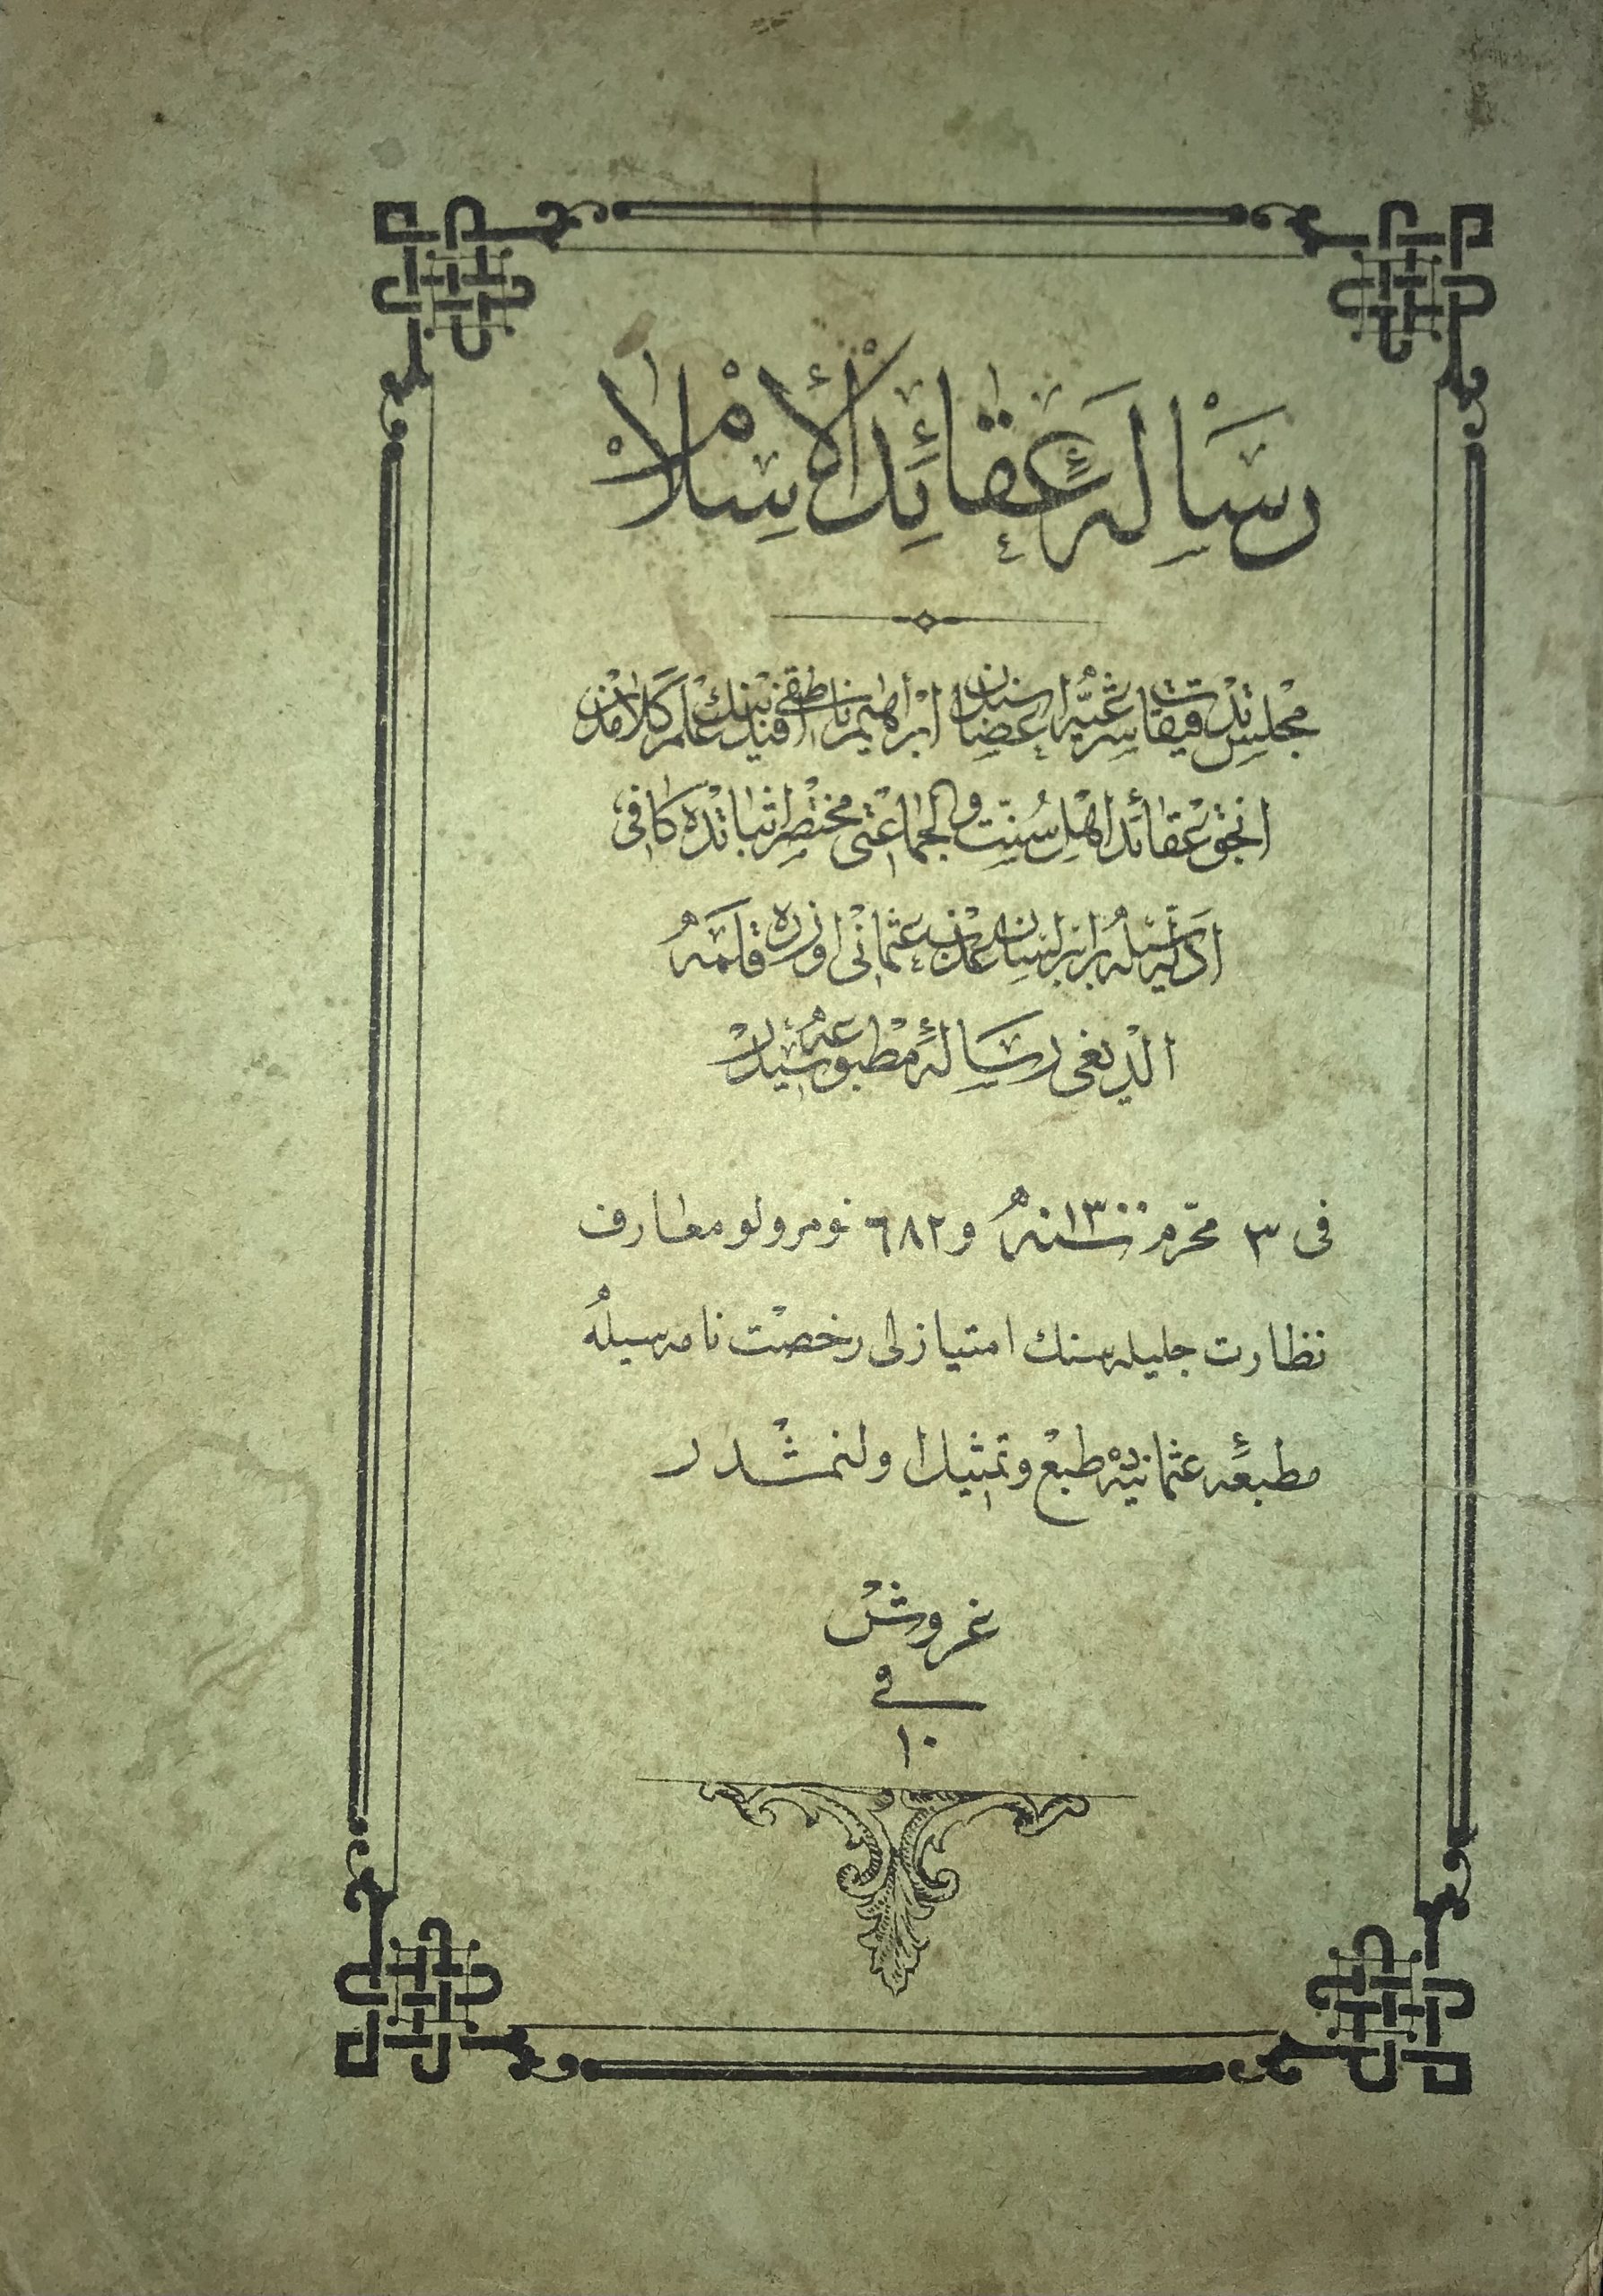 رسالهٔ عقائد الاسلام
مجلس تدقیقات شرعیه اعضاسندن ابراهیم ناطقی افندینك علم کلامدن
انجق عقائد اهل سنت والجماعتی مختصر اثباتده کافی
ادله سیله برابر لسان عثمانی اوزره قلمه
الدیغی رسالهٔ مطبوعه سیدر
فی ٣ محرم سنه ١٣٠٠ و ٦٨٢ نومرولو معارف
نظارت جلیله سنك امتیازلی رخصت نامه سیله
مطبعهٔ عثمانیه ده طبع و تمثیل اولنمشدر
غروش
فی
١٠